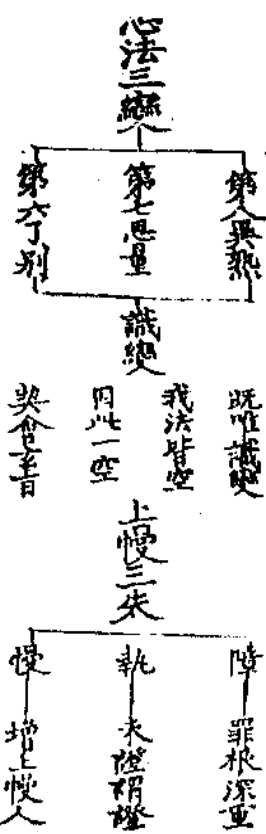 心法三變
第八異熟
第七思量
第六了別
識變
既唯識變
我法皆空
因此一空
契會吾旨
上慢三失
障 罪根深重
執 未證謂證
慢 增上慢人